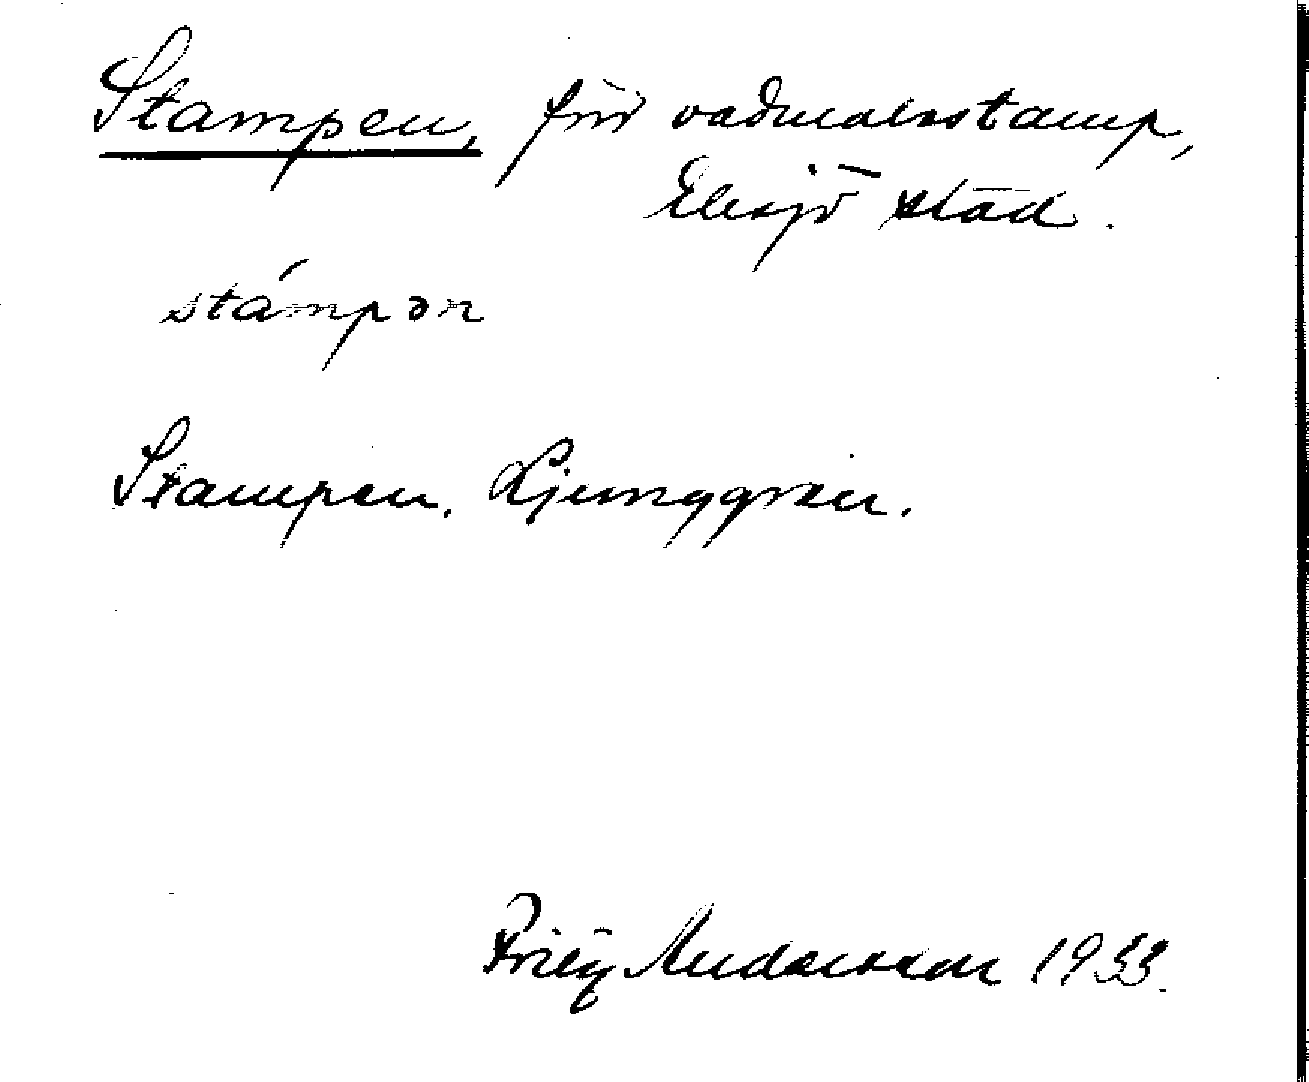 Stampen, för vadmalsstamp,
Eksjö stad.
stámpən
Stampen. Ljunggren.
Andersson 1933.